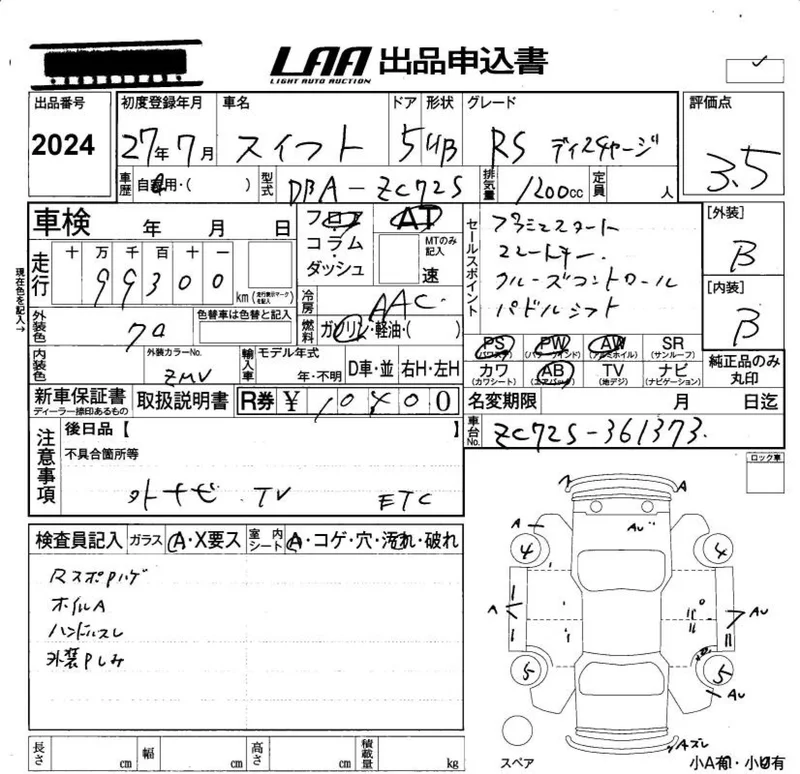 LAA 出品申込書
LIGHT AUTO AUCTION
出品番号 初度登録年月 車名 ドア 形状 グレード 評価点
2024 27年7月 スイフト 5 HB RS 3.5
車歴 自家用・( ) 型式 DBA-ZC72S 排気量 1200cc 定員 人
車検 年 月 日 フロア AT セールスポイント [外装]
コラム・ MTのみ記入 B
ダッシュ 速 クルーズコントロール
走行 十 万 千 百 十 一 パドルシフト
99300 km (走行表示マークを記入) [内装]
現在色を記入→ 冷房 AAC B
外装色 79 色替車は色替と記入 燃料 ガソリン・軽油・( )
PS (パワステ) PW (パワーウインド) AW (アルミホイル) SR (サンルーフ)
内装色 外装カラーNo. ZMV 輸入車 モデル年式 年・不明 D車・並 右H・左H
カワ (カワシート) AB (エアバック) TV (地デジ) ナビ (ナビゲーション) 純正品のみ丸印
新車保証書 ディーラー捺印あるもの 取扱説明書 R券 ¥ 10400
名変期限 月 日迄
注意事項 後日品【 】 車台No. ZC72S-361373
不具合箇所等 ロック車
外ナビ TV ETC
検査員記入 ガラス A・X要ス 室内シート A・コゲ・穴・汚れ・破れ
RスポPハゲ
ホイルA
ハンドルスレ
外装Pしみ
A A
AU
4 4
A AU
5 5
AU
Aズレ
スペア 小A有・小U有
長さ cm 幅 cm 高さ cm 積載量 kg